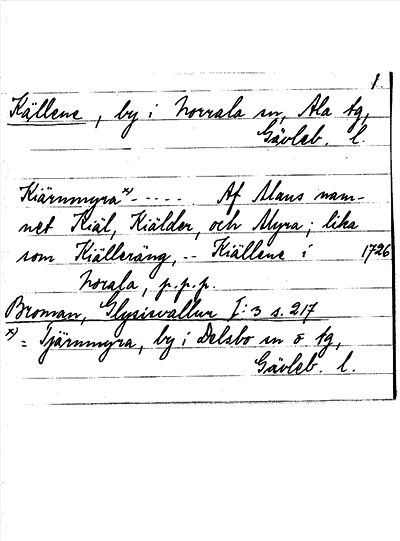 1.
Källene, by i Norrala sn, Ala tg,
Gävleb. l.
Kiärnmyra x) - - - - - Af Mans nam-
net Kiäl, Kiälder, och Myra; lika
som Kiälleräng, -- Kiällene i 1726
Norala, p.p.p.
Broman, Glysisvallur I:3 s. 217
x) = Tjärnmyra, by i Delsbo sn o tg,
Gävleb. l.